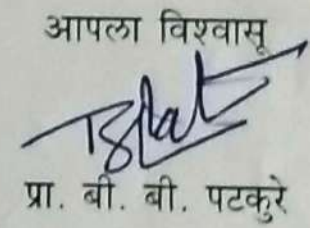 आपला विश्वासू
प्रा. बी. बी. पटकुरे